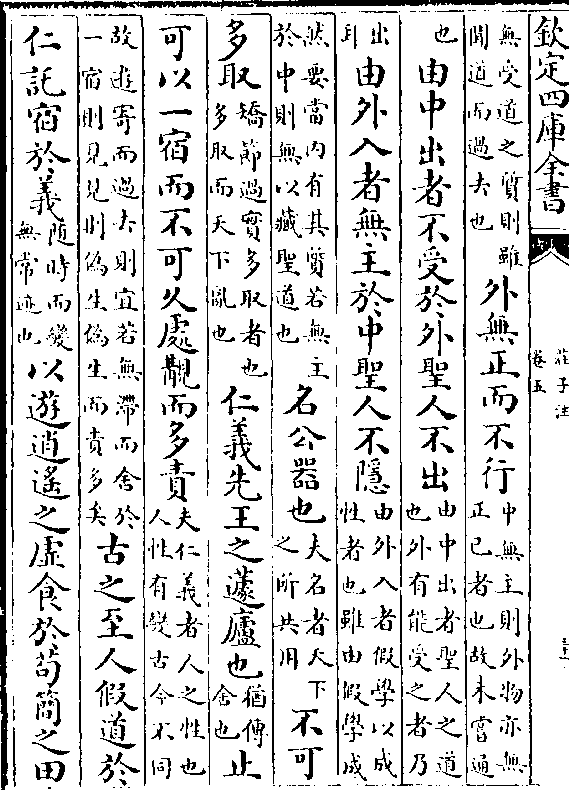 欽定四庫全書
莊子注
卷五
無受道之質則雖
聞道而過去也
外無正而不行
中無主則外物亦無
正已者也故未嘗通
也
由中出者不受於外聖人不出
由中出者聖人之道
也外有能受之者乃
出
耳
由外入者無主於中聖人不隱
由外入者假學以成
性者也雖由假學成
然要當内有其質若無主
於中則無以藏聖道也
名公器也
夫名者天下
之所共用
不可
多取
矯節過實多取者也
多取而天下亂也
仁義先王之蘧廬也
猶傳
舍也
止
可以一宿而不可久處覯而多責
夫仁義者人之性也
人性有變古今不同
故遊寄而過去則宜若無滯而舍於
一宿則見見則偽生偽生而責多矣
古之至人假道於
仁託宿於義
随時而變
無常迹也
以遊逍遙之虛食於苟簡之田